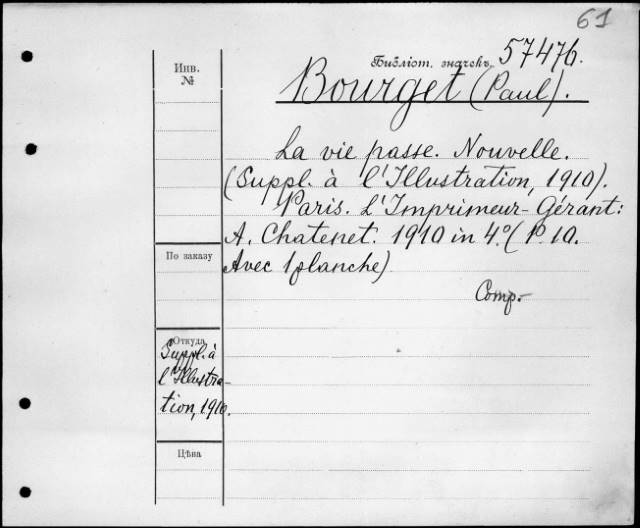 61
Инв.
№
Библіот. значекъ 57476.
Bourget (Paul).
La vie passe. Nouvelle.
(Suppl. à l'Illustration, 1910).
Paris. L'Imprimeur-Gérant:
A. Chatenet. 1910 in 4.º (P. 10.
Avec 1 planche)
Comp.-
По заказу
Откуда
Suppl. à
l'Illustra-
tion, 1910.
Цѣна